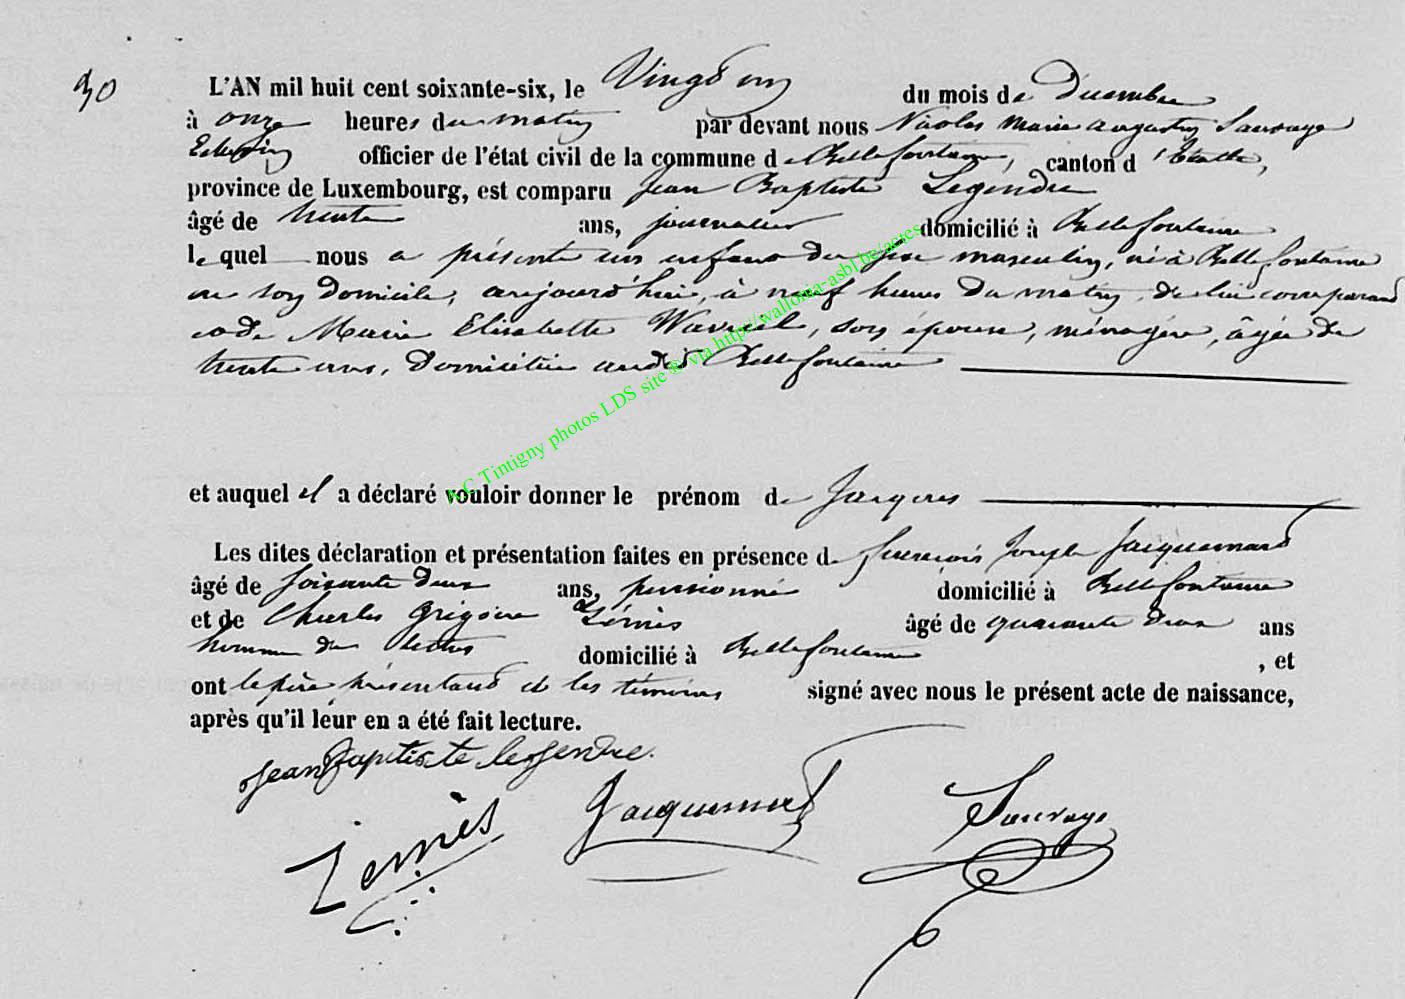 30
L'AN mil huit cent soixante-six, le Vingt un du mois de Décembre
à onze heures du matin par devant nous Nicolas Marie Augustin Sauvage
Echevin officier de l'état civil de la commune de Bellefontaine, canton d'Etalle,
province de Luxembourg, est comparu Jean Baptiste Legendre
âgé de trente ans, journalier domicilié à Bellefontaine
lequel nous a présenté un enfant du sexe masculin, né à Bellefontaine
en son domicile, aujourd'hui, à neuf heures du matin, de lui comparant
et de Marie Elisabette son épouse, ménagère, âgée de
trente ans, domiciliée audit Bellefontaine
A.C Tintigny photos LDS site ® via http://wallonia-asbl.be/actes
et auquel il a déclaré vouloir donner le prénom de Jacques
Les dites déclaration et présentation faites en présence de françois Joseph Jacquemard
âgé de soixante deux ans, pensionné domicilié à Bellefontaine
et de Charles Grégoire Zérnès âgé de quarante deux ans
homme de lettres domicilié à Bellefontaine, et
ont le père présentant et les témoins signé avec nous le présent acte de naissance,
après qu'il leur en a été fait lecture.
Jean Baptiste legendre.
Jacquemard
Sauvage